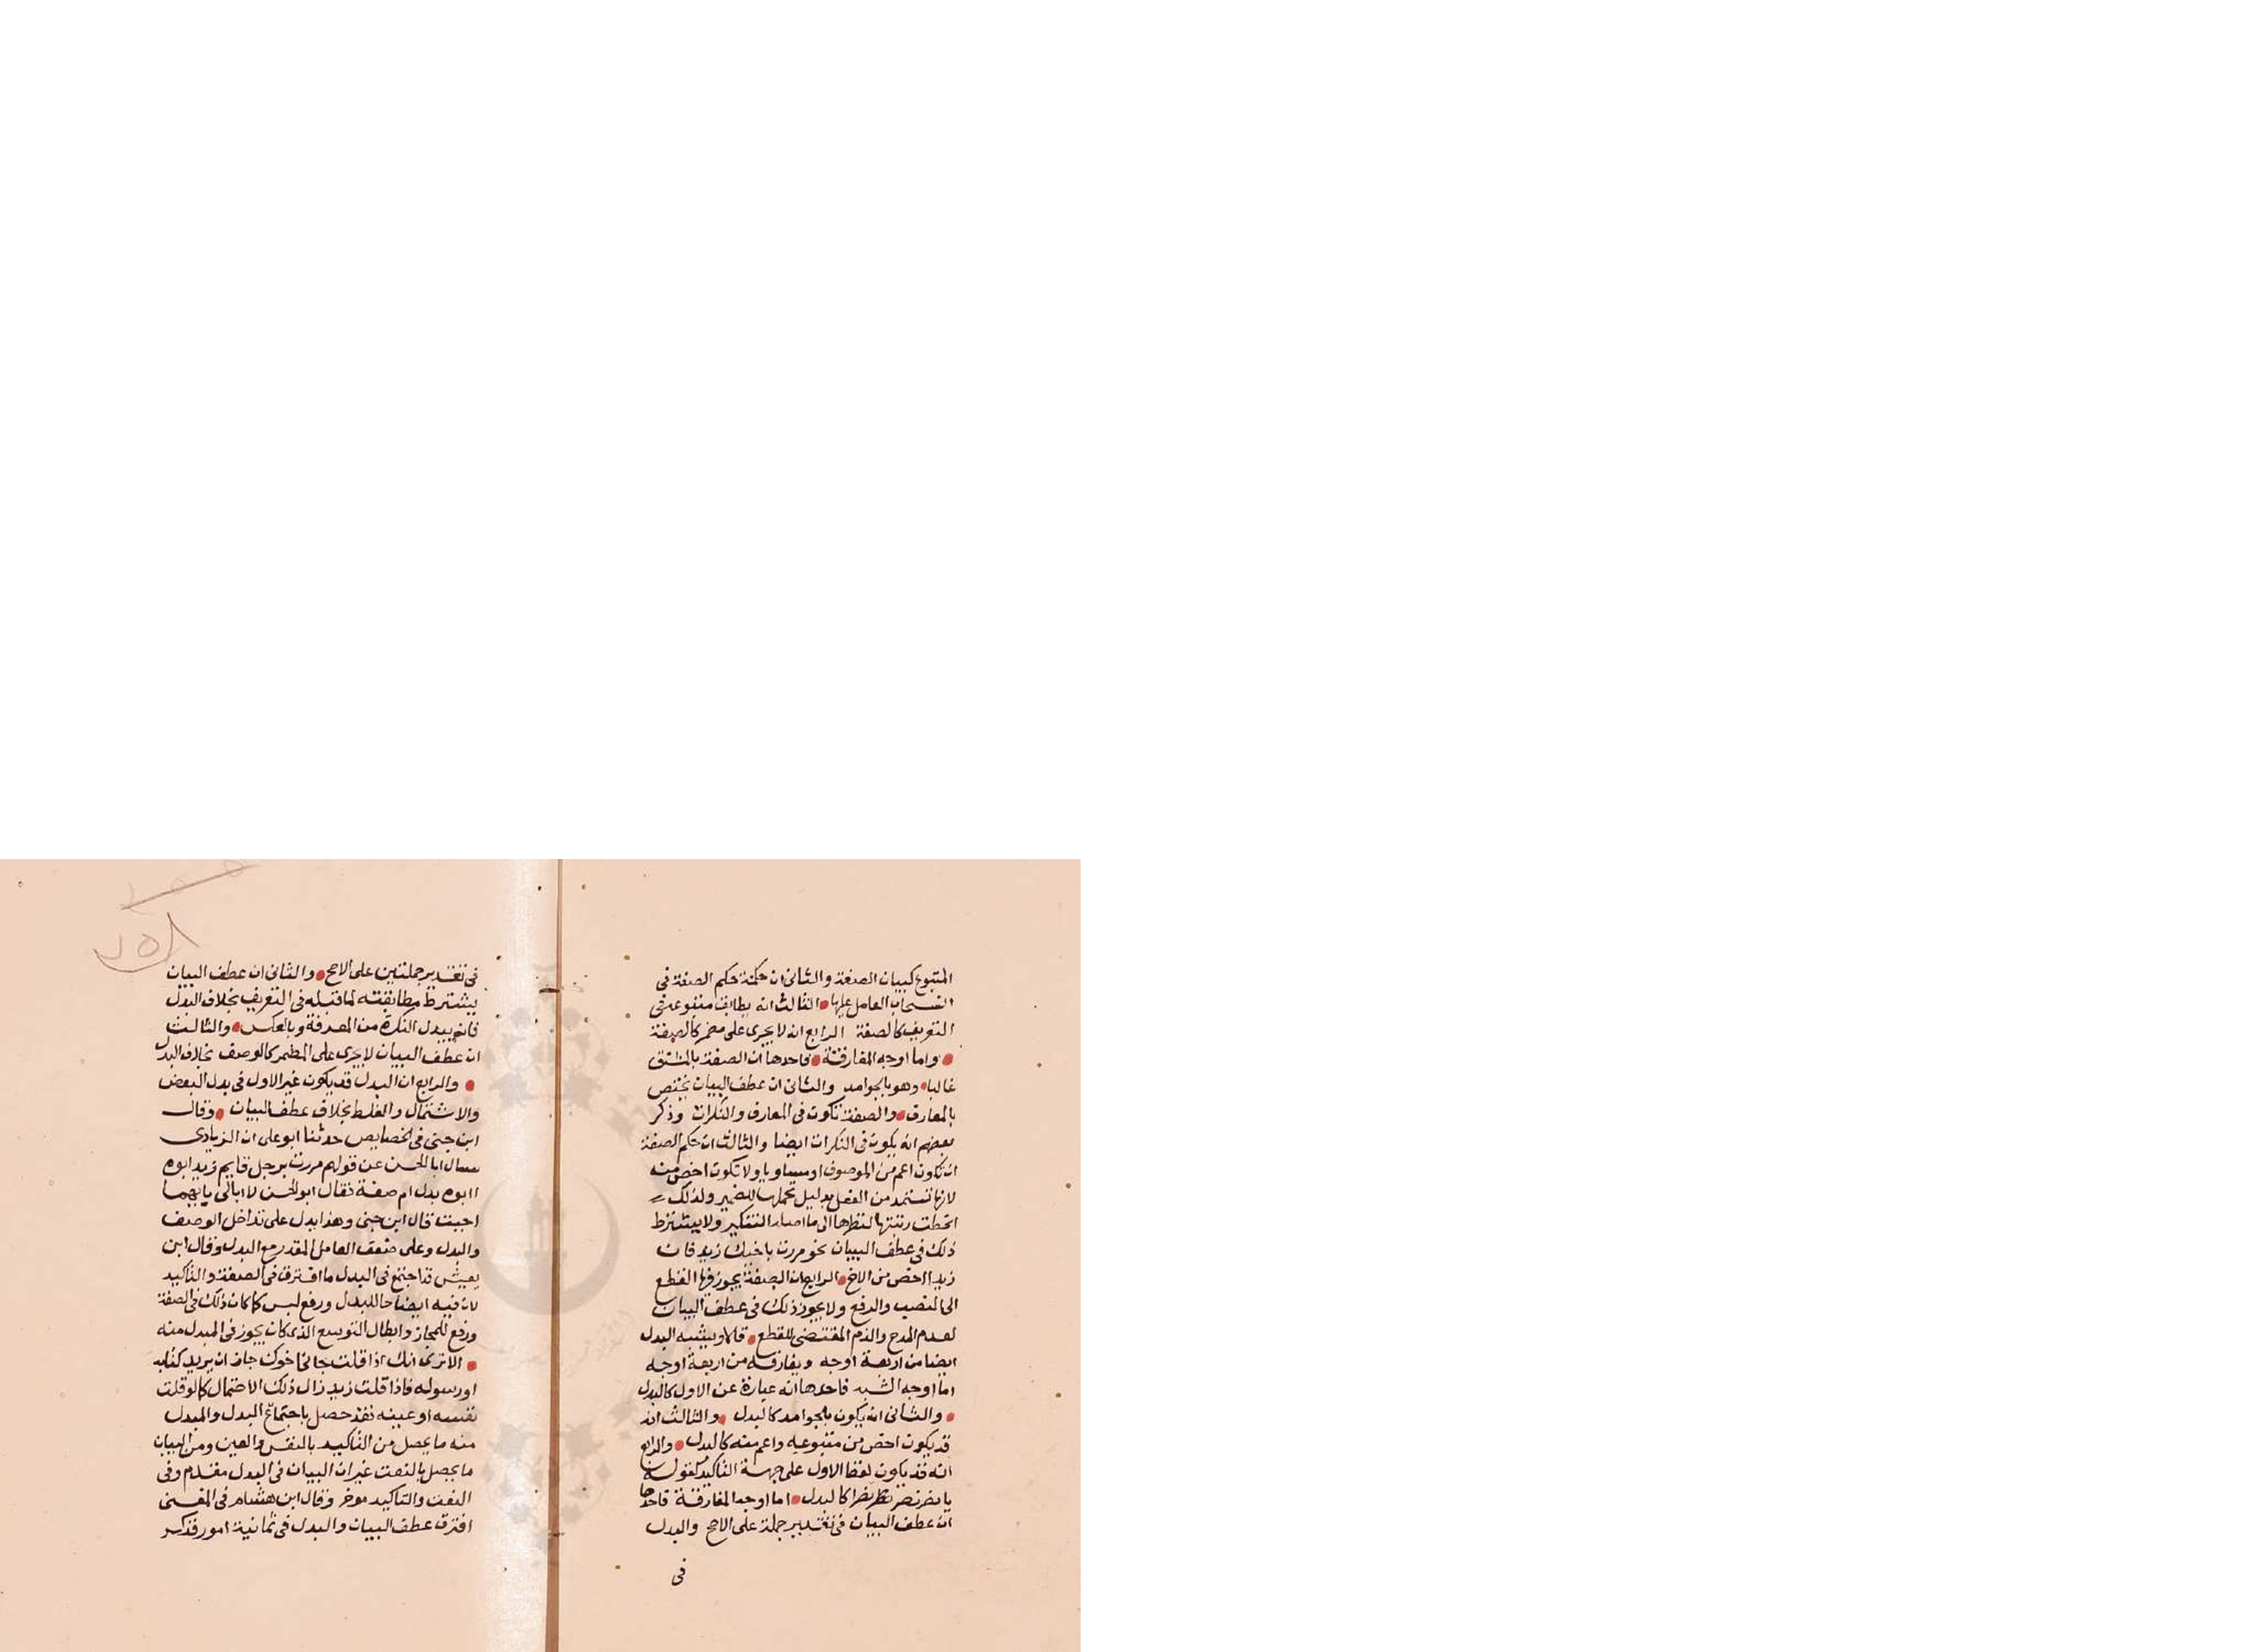 المتبوع كبيان الصفة والثانى ان حكمه حكم الصفة فى
انسحاب العامل عليها والثالث انه يطابق متبوعه فى
التعريف كالصفة الرابع انه لا يجرى على مضمر كالصفة
واما اوجه المفارقة فاحدها ان الصفة بالمشتق
غالبا وهو بالجوامد والثانى ان عطف البيان يختص
بالمعارف والصفة تكون فى المعارف والنكرات وذكر
بعضهم انه يكون فى النكرات ايضا والثالث ان حكم الصفة
ان تكون اعم من الموصوف او مساويا ولا تكون اخص منه
لانها تستمد من الفعل بدليل تحملها للضمير ولذلك
انحطت رتبتها لنظرها الى ما اصله التنكير ولا يشترط
ذلك فى عطف البيان نحو مررت باخيك زيد فان
زيد اخص من الاخ الرابع ان الصفة يجوز فيها القطع
الى النصب والرفع ولا يجوز ذلك فى عطف البيان
لعدم المدح والذم المقتضى للقطع قال ويشبه البدل
ايضا من اربعة اوجه ويفارقه من اربعة اوجه
اما اوجه الشبه فاحدها انه عبارة عن الاول كالبدل
والثانى انه يكون بالجوامد كالبدل والثالث انه
قد يكون اخص من متبوعه واعم منه كالبدل والرابع
انه قد يكون لفظ الاول على جهة التاكيد كقوله
يا نصر نصر نصرا كالبدل اما اوجه المفارقة فاحدها
ان عطف البيان فى تقدير جملة على الاصح والبدل
فى
٢٥٨
فى تقدير جملتين على الاصح والثانى ان عطف البيان
يشترط مطابقته لما قبله فى التعريف بخلاف البدل
فانه يبدل النكرة من المعرفة وبالعكس والثالث
ان عطف البيان لا يجرى على المضمر كالوصف بخلاف البدل
والرابع ان البدل قد يكون غير الاول فى بدل البعض
والاشتمال والغلط بخلاف عطف البيان وقال
ابن جنى فى الخصايص حدثنا ابو على ان الزيادى
سال ابا الحسن عن قولهم مررت برجل قايم زيد ابوه
اابوه بدل ام صفة فقال ابو الحسن لا ابالى بايهما
اجبت قال ابن جنى وهذا يدل على تداخل الوصف
والبدل وعلى ضعف العامل المقدر مع البدل وقال ابن
يعيش قد اجتمع فى البدل ما افترق فى الصفة والتاكيد
لان فيه ايضاحا للبدل ورفع لبس كما كان ذلك فى الصفة
ورفع للمجاز وابطال التوسع الذى كان يجوز فى المبدل منه
الا ترى انك اذا قلت جانى اخوك جاز ان يريد كتابه
او رسوله فاذا قلت زيد زال ذلك الاحتمال كما لو قلت
نفسه او عينه فقد حصل باجتماع البدل والمبدل
منه ما يحصل من التاكيد بالنفس والعين ومن البيان
ما يحصل بالنعت غير ان البيان فى البدل مقدم وفى
النعت والتاكيد موخر وقال ابن هشام فى المغنى
افترق عطف البيان والبدل فى ثمانية امور فذكر